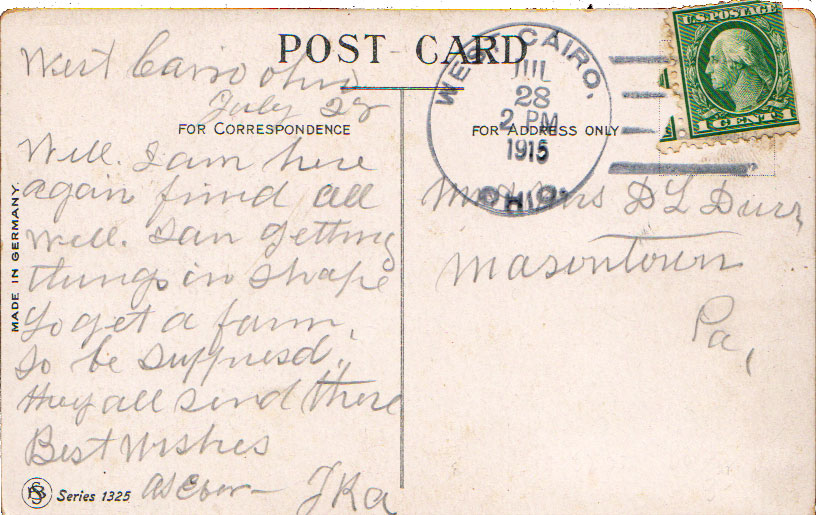 POST CARD
West Cairo ohio
July 28
FOR CORRESPONDENCE
Well. I am here
again find all
well. I am getting
things in shape
to get a farm.
So be suppresd.
they all send there
Best wishes
as Ever
MADE IN GERMANY.
Series 1325
WEST CAIRO,
JUL
28
2 PM
1915
OHIO.
U.S. POSTAGE
CENTS
FOR ADDRESS ONLY
Mr & Mrs D L Durr
Masontown
Pa,